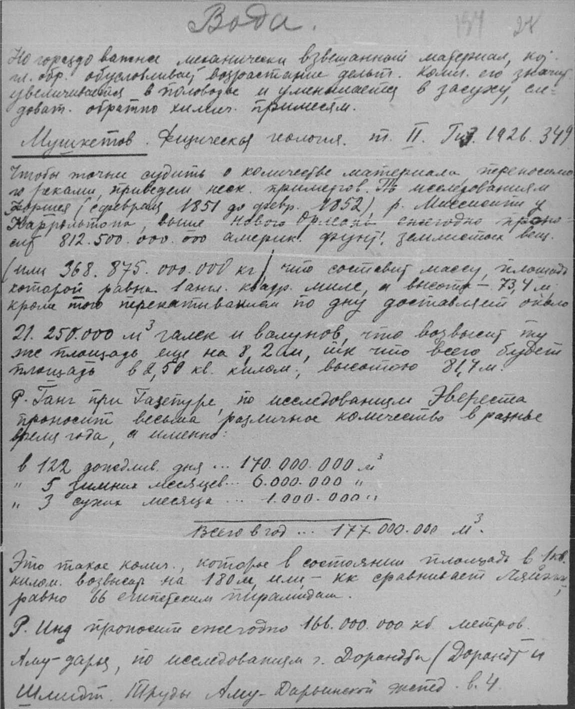 Вода.
28
Но гораздо важнее механически взвешанный материал, кот.
гл. обр. обусловливает возрастание дельт. Колич. его значит.
увеличивается в половодье и уменьшается в засуху, сле-
доват. обратно химич. примесям.
Мушкетов. Физическая геология. т. II. Гиз. 1926. 349
Чтобы точнее судить о количестве материала, переносимо
го реками, приведем неск. примеров. По исследованиям
(с февраля 1851 до февр. 1852) р. Миссисипи у
Карролтона, выше Нового Орлеана ежегодно проно-
сит 812.500.000.000 америк. фунт. землистых вещ.
(или 368.875.000.000 кг), что составит массу, площадь
которой равна 1 англ. квадр. миле, а высота – 73,4 м
кроме того перекатыванием по дну доставляет около
21.250.000 м³ галек и валунов, что возвысит ту
же площадь еще на 8,2 м, так что всего будет
площадь в 2,50 кв. килом., высотою 81,4 м.
Р. Ганг при Газепуре, по исследованиям Эвереста
проносит весьма различное количество в разное
время года, а именно:
в 122 дождлив. дня ... 170.000.000 м³
" 5 зимних месяцев.. 6.000.000 "
" 3 сухих месяца ... 1.000.000 "
Всего в год ... 177.000.000 м³.
Это такое колич., которое в состоянии площадь в 1 кв.
килом. возвысить на 180 м, или – как сравнивает Ляйэлль,
равно 66 египетским пирамидам.
Р. Инд проносит ежегодно 166.000.000 кб метров.
Аму-дарья, по исследованиям г. Дорандта (Дорандт и
Шмидт. Труды Аму-Дарьинской экспед. в. 4.